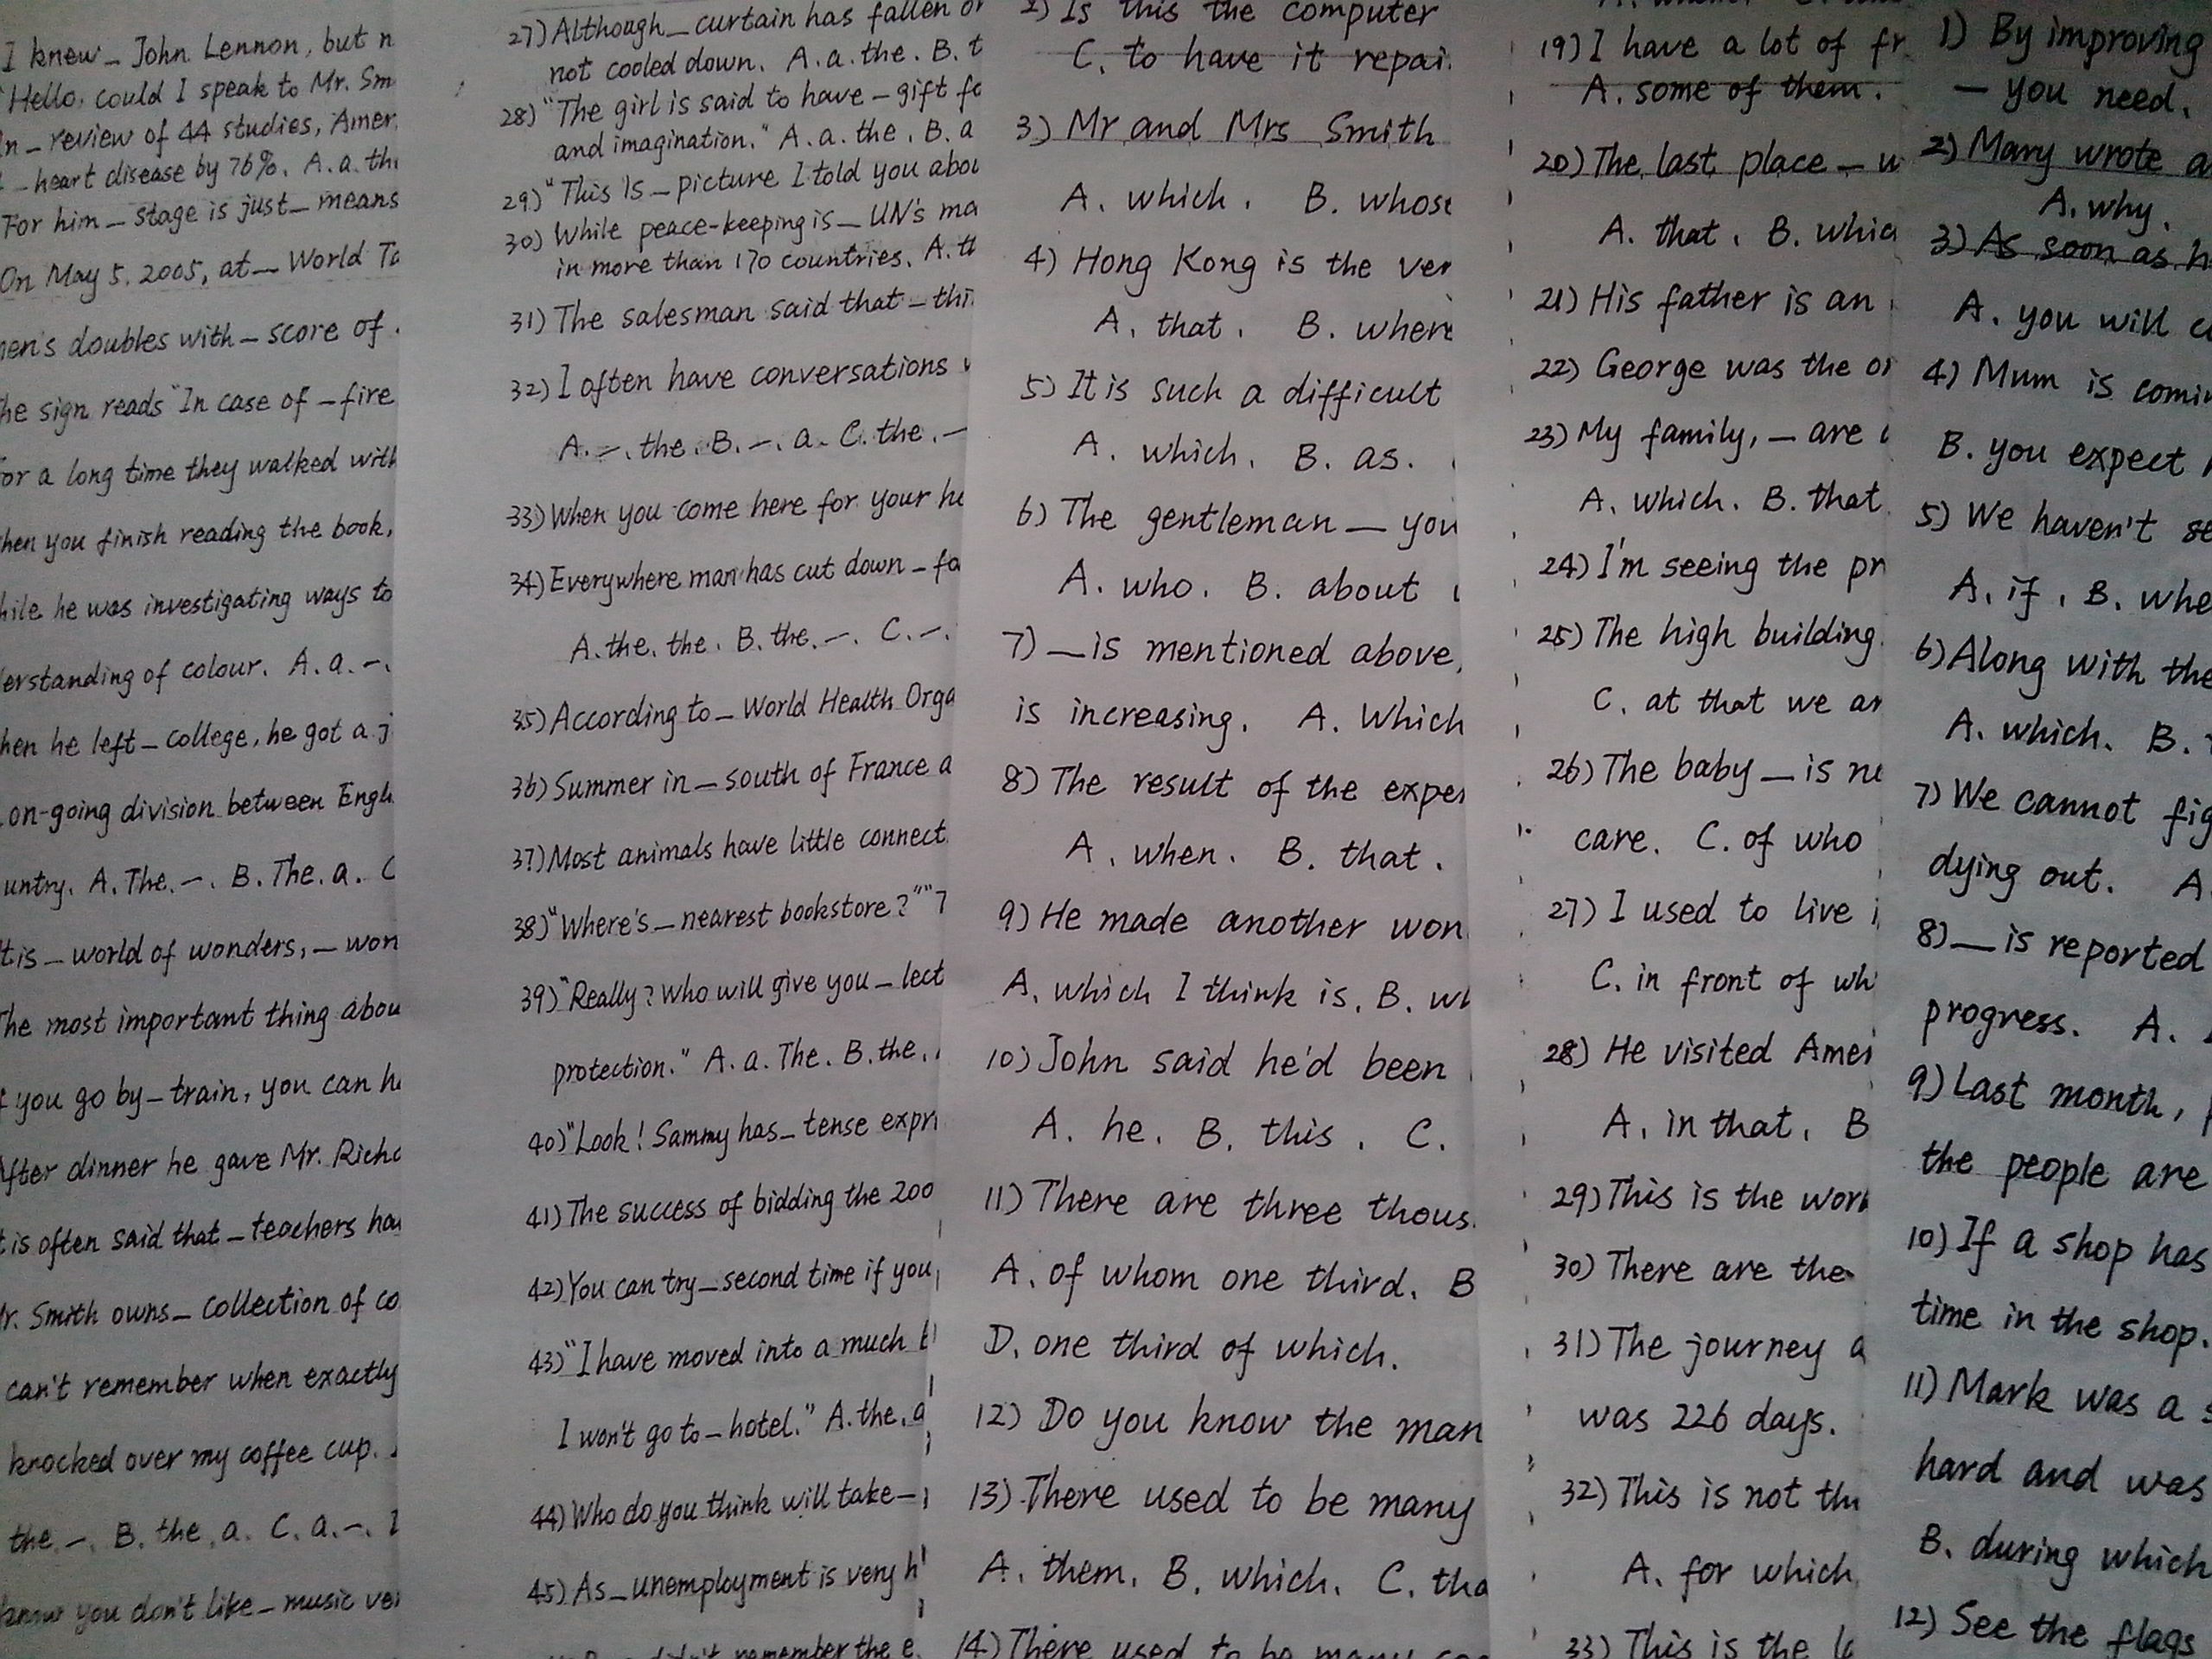 I knew_ John Lennon, but
Hello, could I speak to Mr.
_ review of 44 studies,
_ heart disease by 76%. A. a.
For him_ stage is just_ means
On May 5, 2005, at_ World
doubles with_ score of
sign reads "In case of _fire
a long time they walked with
you finish reading the book,
he was investigating ways to
of colour. A. a. -.
he left_college, he got a
on-going division between
A. The. -. B. The. a. C
is _ world of wonders, _
most important thing
you go by_train, you can
dinner he gave Mr.
is often said that _teachers
Smith owns_ collection of
can't remember when exactly
knocked over my coffee cup.
the. -. B. the. a. C. a. -.
know you don't like_ music
27) Although_ curtain has fallen
not cooled down. A. a. the. B.
28) "The girl is said to have _ gift
and imagination." A. a. the. B. a
29) "This is _ picture I told you
30) While peace-keeping is_ UN's
in more than 170 countries. A.
31) The salesman said that _
32) I often have conversations
A. -. the. B. -. a. C. the. -
33) When you come here for your
34) Everywhere man has cut down _
A. the. the. B. the. -. C. -.
35) According to _ World Health
36) Summer in _ south of France
37) Most animals have little
38) "Where's _ nearest bookstore?" "
39) "Really? Who will give you _
protection." A. a. The. B. the.
40) "Look! Sammy has_ tense
41) The success of bidding the
42) You can try_ second time if you
43) "I have moved into a much
I won't go to _ hotel." A. the.
44) Who do you think will take _
45) As _unemployment is very
remember the
2) Is this the computer
C. to have it
3) Mr and Mrs Smith
A. which. B.
4) Hong Kong is the
A. that. B.
5) It is such a difficult
A. which. B. as.
6) The gentleman _ you
A. who. B. about
7) _ is mentioned above,
is increasing. A. Which
8) The result of the
A. when. B. that.
9) He made another
A. which I think is. B.
10) John said he'd been
A. he. B. this. C.
11) There are three
A. of whom one third. B
D. one third of which.
12) Do you know the man
13) There used to be many
A. them. B. which. C.
14) There used to be many
19) I have a lot of
A. some of them.
20) The last place _
A. that. B.
21) His father is an
22) George was the
23) My family, _ are
A. which. B. that
24) I'm seeing the
25) The high building
C. at that we
26) The baby _ is
care. C. of who
27) I used to live
C. in front of
28) He visited
A. in that. B
29) This is the
30) There are
31) The journey
was 226 days.
32) This is not
A. for which
33) This is the
1) By improving
_ you need.
2) Mary wrote
A. why.
3) As soon as
A. you will
4) Mum is
B. you expect
5) We haven't
A. if. B.
6) Along with the
A. which. B.
7) We cannot
dying out. A
8) _ is reported
progress. A.
9) Last month,
the people are
10) If a shop has
time in the shop.
11) Mark was a
hard and was
B. during which
12) See the flags